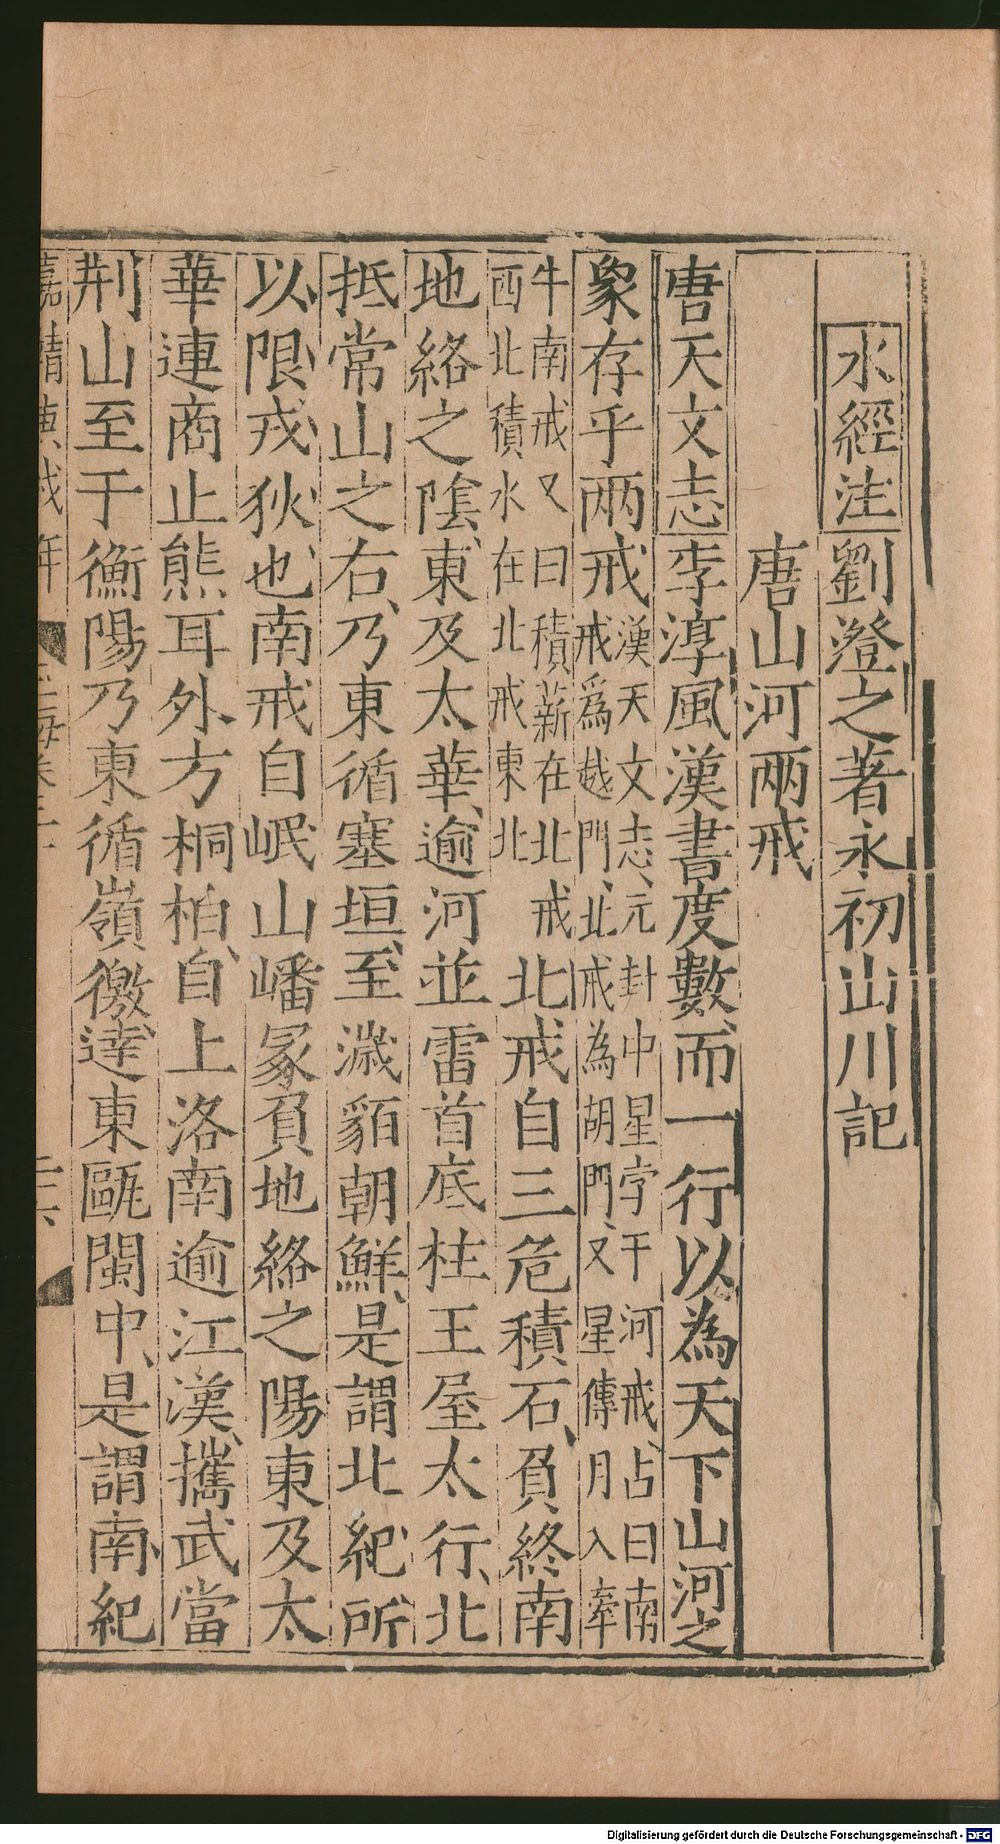 水經注劉澄之著永初山川記
唐山河兩戒
唐天文志李淳風漢書度數而一行以為天下山河之
象存乎兩戒漢天文志元封中星孛于河戒占曰南
戒為越門北戒為胡門又星傳月入牽
牛南戒又曰積薪在北戒
西北積水在北戒東北
北戒自三危積石負終南
地絡之陰東及太華逾河並雷首底柱王屋太行北
抵常山之右乃東循塞垣至濊貊朝鮮是謂北紀所
以限戎狄也南戒自岷山嶓冢負地絡之陽東及太
華連商止熊耳外方桐柏自上洛南逾江漢攜武當
荆山至于衡陽乃東循嶺徼達東甌閩中是謂南紀
嘉靖庚戌年
Digitalisierung gefördert durch die Deutsche Forschungsgemeinschaft - DFG